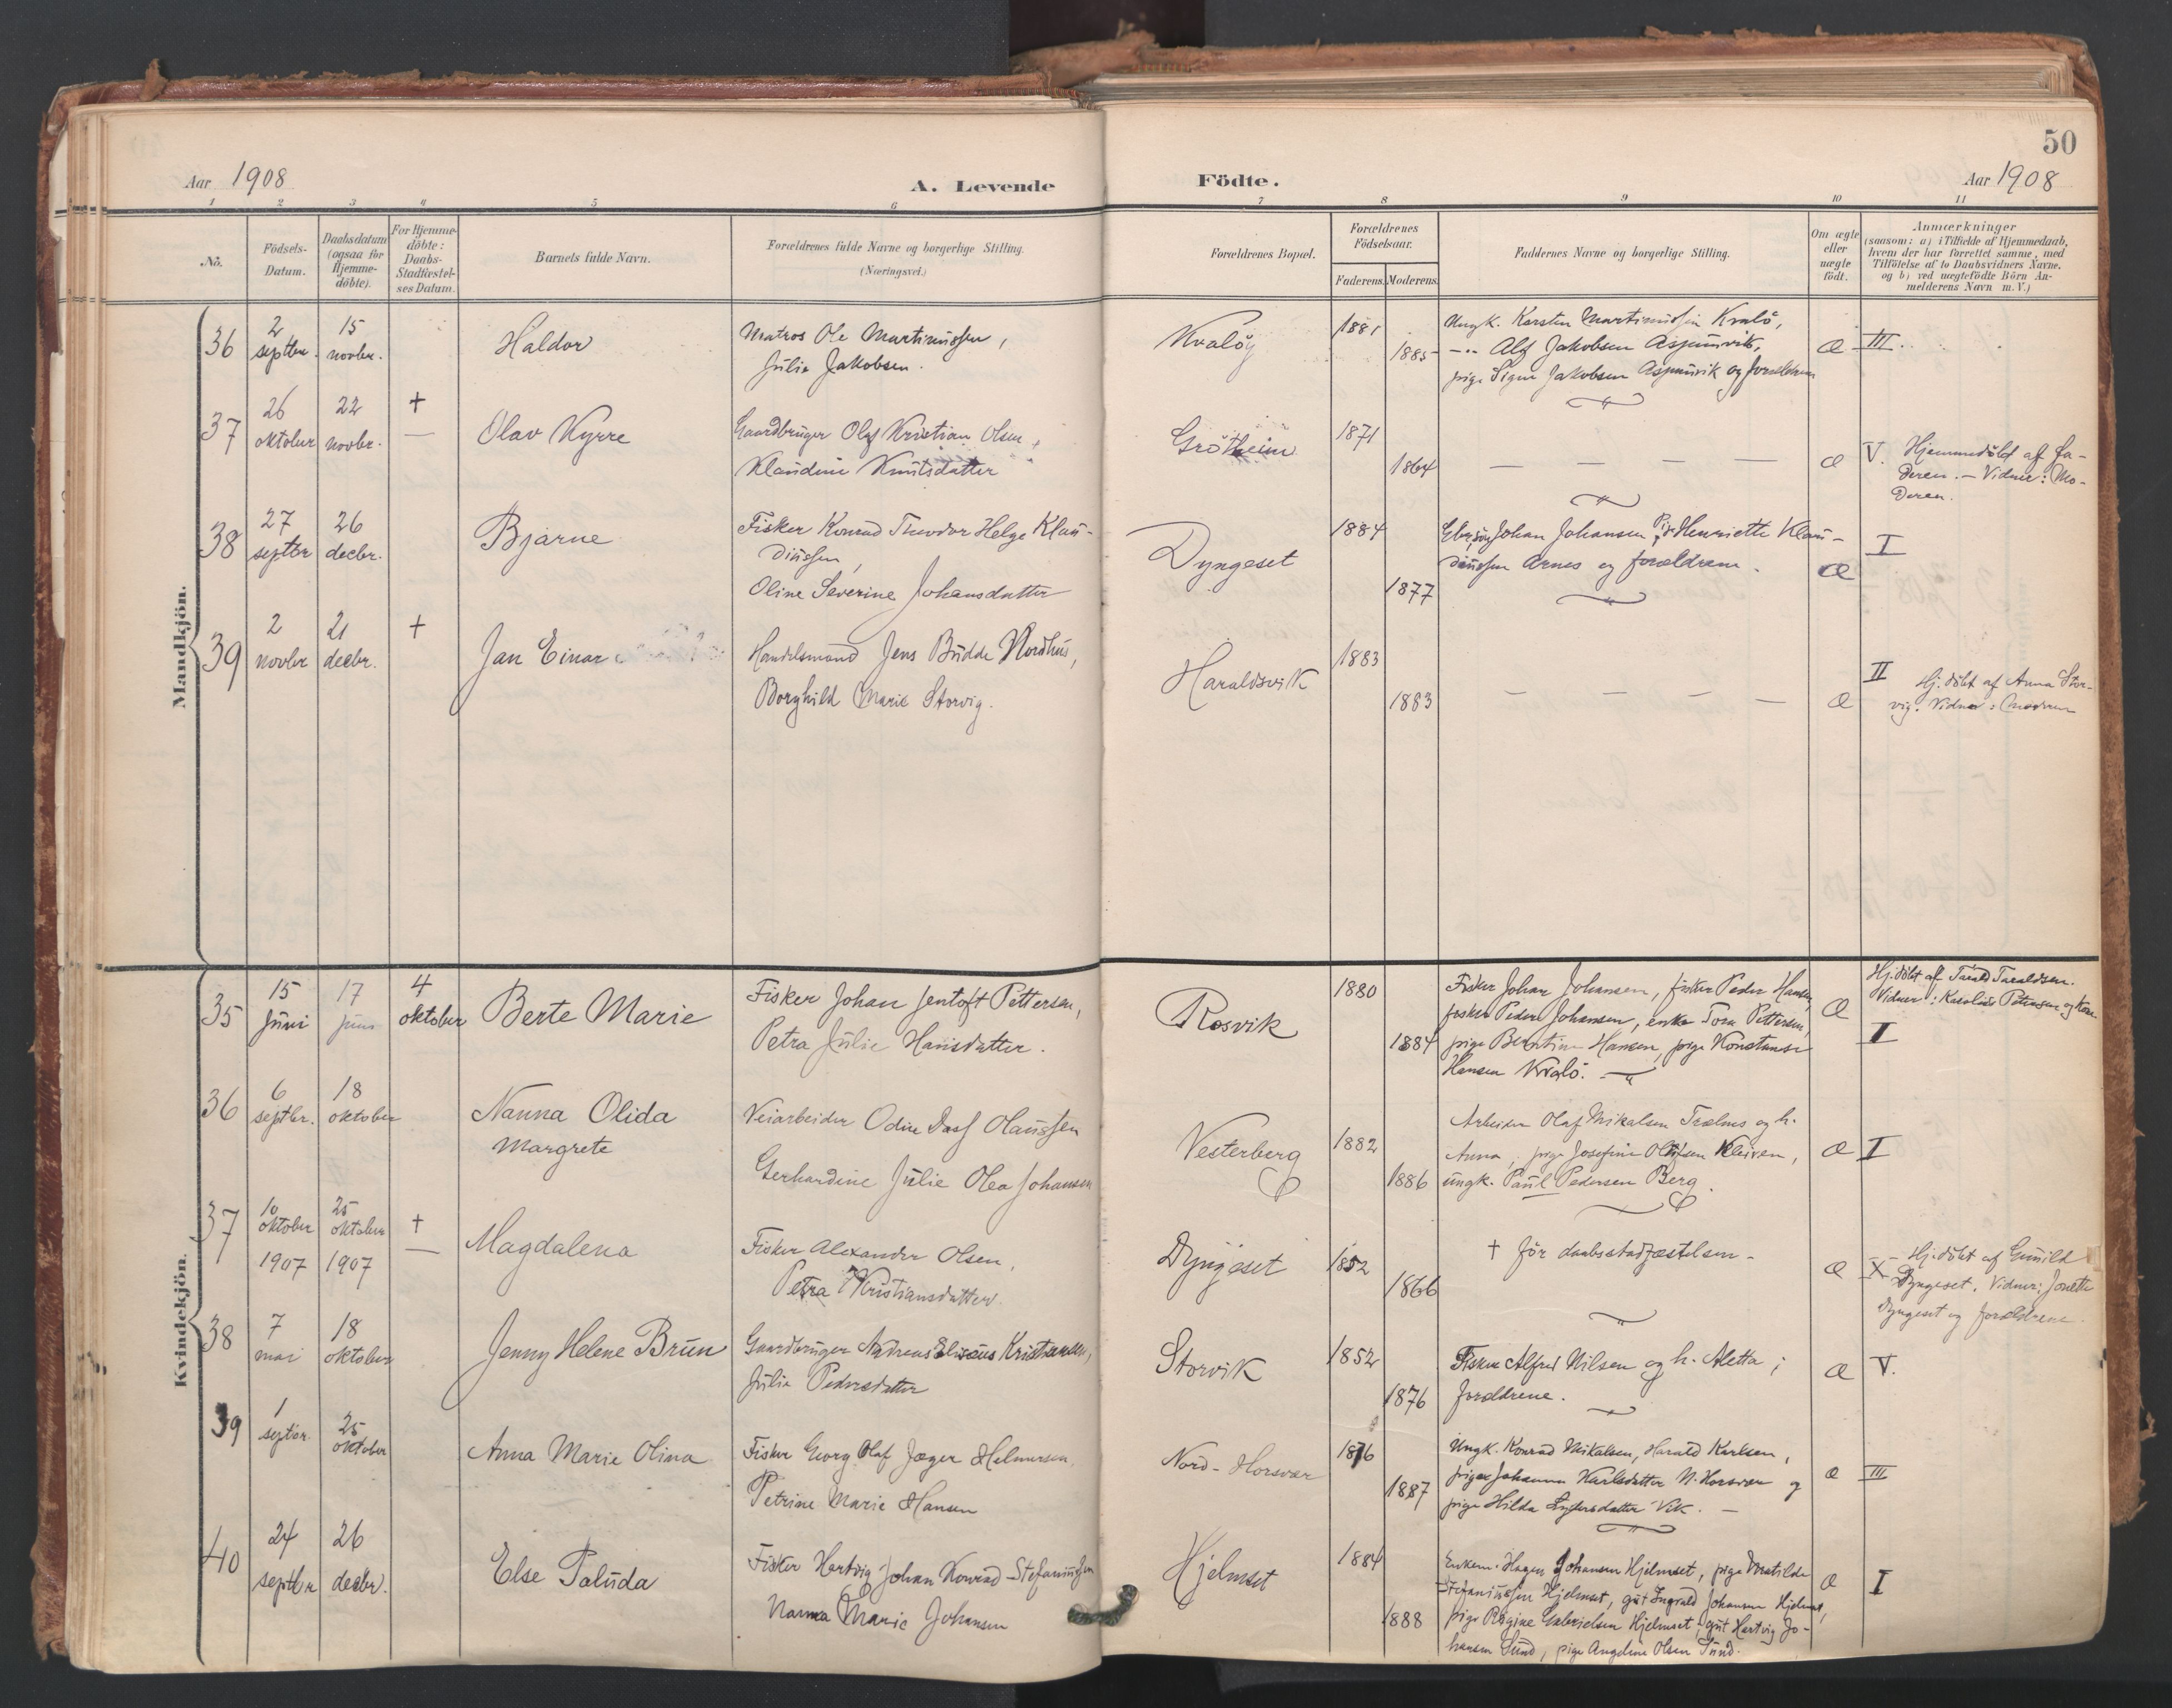 50
Aar 1908
A. Levende Födte.
Aar 1908
1 2 3 4 5 6 7 8 9 10 11
No.
Födsels-Datum.
Daabsdatum (ogsaa for Hjemme-döbte).
For Hjemme-döbte: Daabs-Stadfæstel-ses Datum.
Barnets fulde Navn.
Forældrenes fulde Navne og borgerlige Stilling.
(Næringsvei.)
Forældrenes Bopæl.
Forældrenes Födselsaar.
Faderens. Moderens.
Faddernes Navne og borgerlige Stilling.
Om ægte eller uægte födt.
Anmærkninger
(saasom: a) i Tilfælde af Hjemmedaab,
hvem der har forrettet samme, med
Tilföielse af to Daabsvidners Navne,
og b) ved uægtefödte Börn An-
melderens Navn m. V.)
Mandkjön.
36 2 septbr. 15 novbr. Haldor
Matros Ole Martinussen,
Julie Jakobsen.
Kvalöy 1881 1885
Ungk. Karsten Martinussen Kvalö,
-"- Alf Jakobsen Aspmvik,
pige Signe Jakobsen Aspmvik og forældrene
Æ III.
37 26 oktober 22 novbr. + — Olav Kyrre
Gaardbruger Olaf Kristian Olsen,
Klaudine Knutsdatter
Grötheim 1871 1864
— — — —
Æ V. Hjemmedöbt af Fa-
deren. — Vidner: Mo-
deren.
38 27 septbr 26 decbr. Bjarne
Fisker Konrad Theodor Helge Klau-
diussen,
Oline Severine Johansdatter
Dyngeset 1884 1877
Johan Johansen, Pige Henriette Klau-
diussen Arnes og forældrene.
Æ I
39 2 novbr 21 decbr. + Jan Einar
Handelsmand Jens Budde Nordhus,
Borghild Marie Storvig.
Haraldsvik 1883 1883
— — — —
Æ II Hj. döbt af Anna Stor-
vig. Vidner: Moderen
Kvindekjön.
35 15 Juni 17 juni 4 oktober Berte Marie
Fisker Johan Jentoft Pettersen,
Petra Julie Hansdatter.
Rosvik 1880 1884
Fisker Johan Johansen, fisker Peder Hansen,
fisker Peder Johansen, enke Tora Pettersen,
pige Berntine Hansen, pige Konstanse
Hansen Kvalö.
Æ Hj. döbt af Taraldsen.
Vidner: Petersen og
I
36 6 septbr. 18 oktober Nanna Olida
Margrete
Veiarbeider Odin Dass Olaussen
Gerhardine Julie Olea Johansen
Vesterberg 1882 1886
Arbeider Olaf Mikalsen Trælnes og h.
Anna, pige Josefine Olsen Kleiven,
ungk. Paul Pedersen Berg.
Æ I
37 10 oktober 1907 25 oktober 1907 + — Magdalena
Fisker Alexander Olsen,
Petra Kristiansdatter.
Dyngeset 1852 1866
† för daabsstadfæstelsen -
Æ X - Hj. döbt af Gunild
Dyngeset. Vidner: Jonette
Dyngeset og forældrene.
38 7 mai 18 oktober Jenny Helene Brun
Gaardbruger Andreas Eliseus Kristensen,
Julie Pedersdatter
Storvik 1852 1876
Fisker Alfred Nilsen og h. Aletta;
forældrene.
Æ V.
39 1 septbr. 25 oktober Anna Marie Olina
Fisker Georg Olaf Jæger Helmersen,
Petrine Marie Hansen
Nord-Horsvær 1876 1887
Ungk. Konrad Mikalsen, Harald Karlsen,
pige Johanna Karlsdatter N. Horsvær og
pige Hilda Vik. —
Æ III
40 24 septbr 26 decbr. Else Paluda
Fisker Hertvig Johan Konrad Stefanussen
Nanna Marie Johansen
Hjelmset 1884 1888
Enkem. Hagen Johansen Hjelmset, pige Matilde
Stefanussen Hjelmset, gut Ingvald Johansen Hjelmset,
pige Regine Gabrielsen Hjelmset, gut Hertvig Jo-
hansen Sund, pige Angeline Olsen Sund.
Æ I